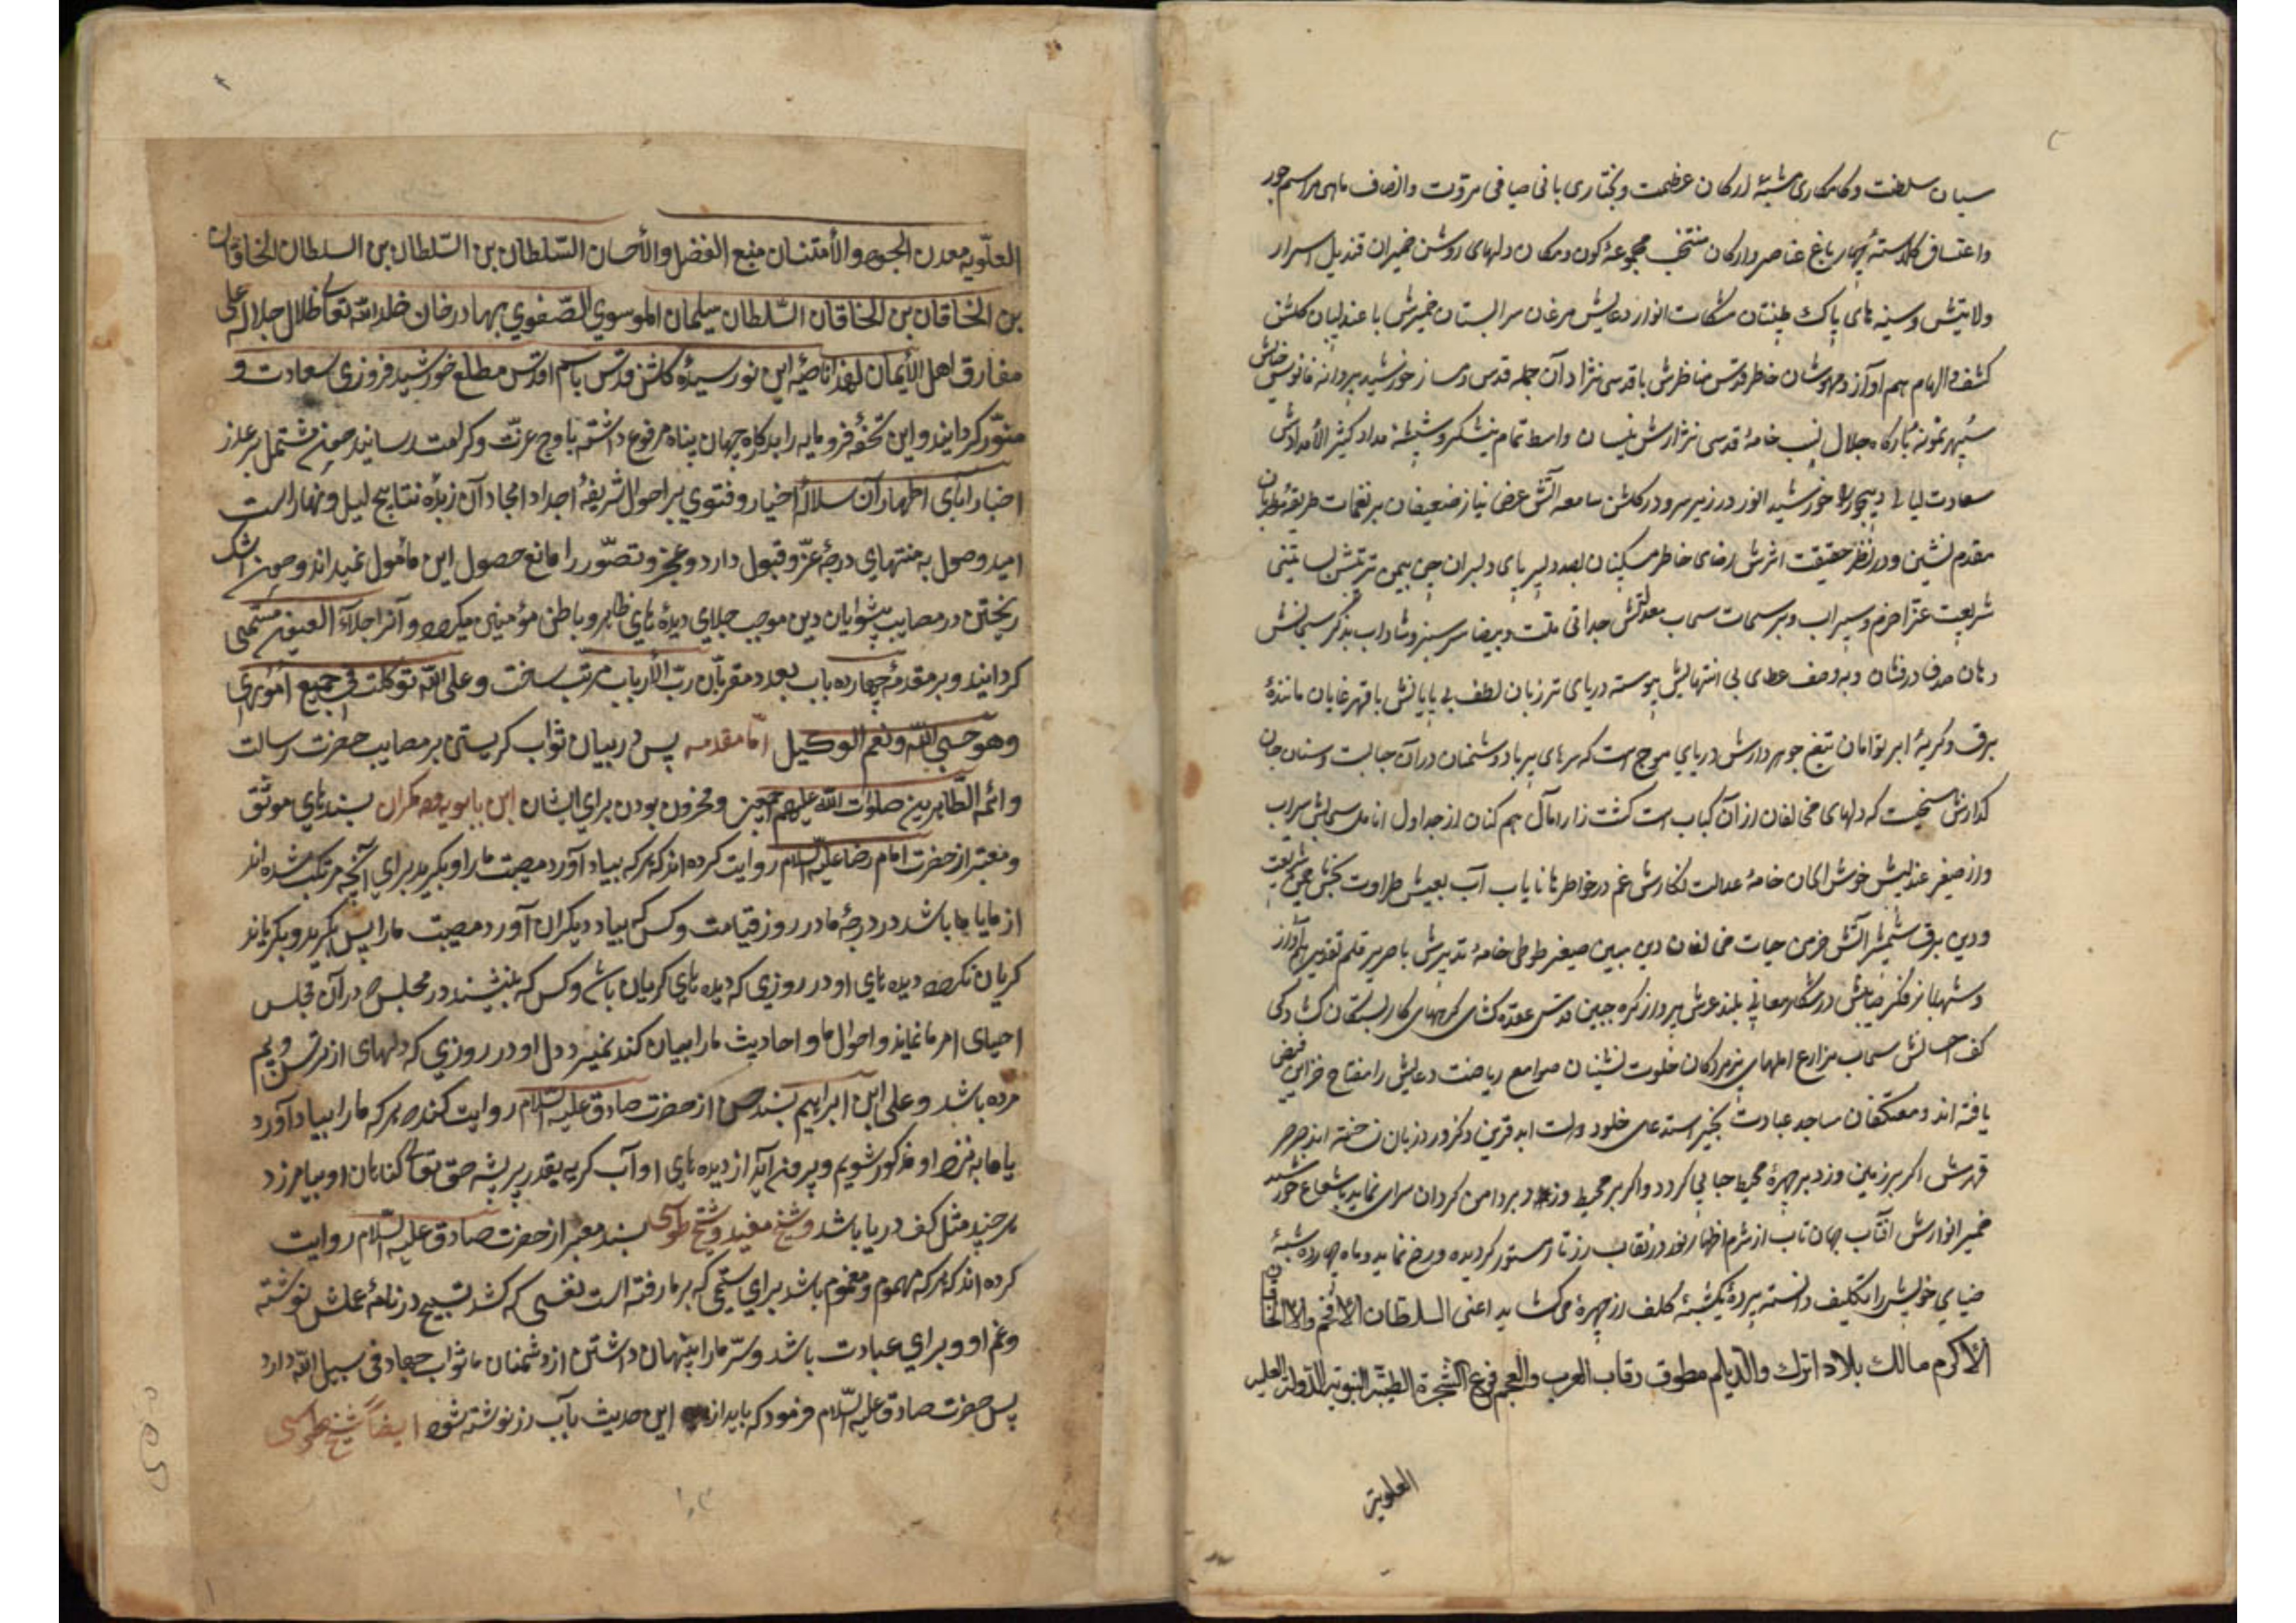 بنیان سلطنت و کامکاری مشیّد ارکان عظمت و بختیاری بانی مبانی مروّت و انصاف ماحی مراسم جور
و اعتساف گلدستهٔ بهار باغ عناصر و ارکان منتخب مجموعهٔ کون و مکان دلهای روشن ضمیران قندیل اسرار
ولایتش و سینه های پاک طینتان مشکات انوار دعایش مرغان سرابستان ضمیرش با عندلیبان گلشن
کشف و الهام هم آواز و مهوشان خاطر قدس مناظرش با قدسی نژادان حجله قدس دمساز خورشید پروانه فانوس
سپهر نمونهٔ بارگاه جلال خامهٔ قدسی نیسان واسط تمام نیشکر و شیشهٔ مداد کثیر الامدادش
سعادت لیالی دیجور خورشید انور در زیر سر و در گلشن سامعه اش عرض نیاز ضعیفان بر نغمات
مقدم نشین و در نظر حقیقت اثرش رضای خاطر مسکینان دلبران چین
شریعت غرّا خرّم و سیراب و بر سحاب معدلتش حدائق ملّت بیضا سر سبز و شاداب بذکر
دهان صدف درفشان و به وصف عطای بی انتهایش پیوسته دریای تر زبان لطف بی پایانش با قهر نمایان مانندهٔ
برق و گریهٔ ابر توامان تیغ جوهر دارش دریای مواج است که سرهای پر باد دشمنان در آن حبابست و سنان جان
گدازش سیخیست که دلهای مخالفان از آن کباب است کشت زار آمال همکنان از جداول انامل سیراب
و از صفیر عندلیب خوش الحان خامهٔ عدالت نگارش غم در خواطرها نایاب آب تیغش طراوت بخش چمن شریعت
و دین برق شمشیر آتش خرمن حیات مخالفان دین مبین صفیر طوطی خامهٔ تدبیرش با صریر قلم تقدیر هم آواز
و شهباز فکر در شکار معانی بلند عرش پرواز گره جبین قدسش عقده گشای گرههای کار بستگان گشادگی
کف احسانش سحاب مزارع املهای پژمردگان خلوت نشینان صوامع ریاضت دعایش را مفتاح خزاین فیض
یافته اند و معتکفان مساجد عبادت بخیر استدعای خلود دولت ابد قرین ذکر ورد زبان ساخته اند صرصر
قهرش اگر بر زمین وزد بر چهرهٔ محیط حبابی گردد و اگر بر محیط وزد بر دامن گردان سرابی نماید با شعاع خورشید
ضمیر انوارش آفتاب جهان تاب از شرم اظهار نور در نقاب زرتار مستور گردیده و رخ ننماید و ماه چهارده شبهٔ
ضیای خویش را تکلیف دانسته پردهٔ یکشبهٔ کلف از چهره می گشاید اعنی السلطان الافخم والخاقان
الاکرم مالک بلاد الترک والدیلم مطوق رقاب العرب والعجم فرع الشجرة الطیبة النبویة الدولة العلیه
العلویة
العلّویه معدن الجود والأمتنان منبع الفضل والأحسان السّلطان بن السّلطان بن السلطان الخاقان
بن الخاقان بن الخاقان السّلطان سلیمان الموسوی الصّفوی بهادرخان خلد الله تعالی ظلال جلاله علی
مفارق اهل الأیمان لهذا ناصیهٔ این نو رسیدهٔ گلشن قدس باسم اقدس مطلع خورشید فروزی سعادت و
منوّر گردانید و این تحفهٔ فرومایه را بدرگاه جهان پناه مرفوع داشته باوج عزّت و کرامت رسانید چون مشتمل بر عدّ از
اخبار آبای اطهار آن سلالهٔ اخیار و فتوی بر احوال شریفهٔ اجداد امجاد آن زبدهٔ نتایج لیل و نهار است
امید وصول به منتهای درجهٔ عزّ و قبول دارد و عجز و تصوّر را مانع حصول این مأمول نمیداند و چون اشک
ریختن در مصایب پیشوایان دین موجب جلای دیده های ظاهر و باطن مؤمنین میگردد و آنرا جلآء العیون مسمّی
گردانید و بر مقدمهٔ چهارده باب بعدد مقربّان ربّ الأرباب مرتب ساخت و علی الله توکلت فی جمیع اموری
وهو حسبی الله ونعم الوکیل امّا مقدمه پس در بیان ثواب گریستن بر مصایب حضرت رسالت
و ائمّه الطّاهرین صلوات الله علیهم اجمعین و محزون بودن برای ایشان ابن بابویه و دیگران بسندهای موثّق
و معتبر از حضرت امام رضا علیه السلام روایت کرده اند که هر که بیاد آورد مصیبت ما را و بگرید برای آنچه مرتکب شده اند
از ما با ما باشد در درجهٔ ما در روز قیامت و کس که بیاد دیگران آورد مصیبت ما را پس بگرید و بگریاند
گریان نگردد دیده های او در روزی که دیده های گریان باشد و کس که بنشیند در مجلس که در آن مجلس
احیای امر ما نماید و احوال ما و احادیث ما را بیان کند نمیرد دل او در روزی که دلهای از ترس و بیم
مرده باشد و علی ابن ابراهیم بسند حسن از حضرت صادق علیه السّلام روایت کنده هر که ما را بیاد آورد
یا ما به نزد او مذکور شویم و بیرون آید از دیده های او آب گریه بقدر پر پشه حق تعالی گناهان او بیامرزد
هر چند مثل کف دریا باشد و شیخ مفید و شیخ طوسی بسند معتبر از حضرت صادق علیه السّلام روایت
کرده اند که هر که مهموم و مغموم باشد برای ستمی که بر ما رفته است نفسی که کشد تسبیح در نامهٔ عملش نوشته
و غم او و برای عبادت باشد و سرّ ما را پنهان داشتن از دشمنان ما ثواب جهاد فی سبیل الله دارد
پس حضرت صادق علیه السّلام فرمود که باید از این حدیث بآب زر نوشته شود ایضاً شیخ طوسی